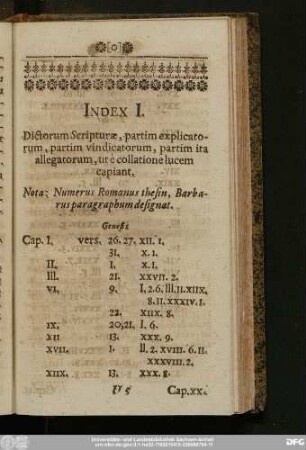 [0]
INDEX I.
Dictorum Scripturæ, partim explicato-
rum, partim vindicatorum, partim ita
allegatorum, ut è collatione lucem
capiant.
Nota: Numerus Romanus thesin, Barba-
rus paragraphum designat.
Genesis
Cap. I. vers. 26. 27. XII. 1.
31. X. 1.
II. 1. X. 1.
III. 21. XXVII. 2.
VI. 9. I, 2. 6. III. II. XIIX,
8. II. XXXIV. I.
22. XIIX. 8.
IX. 20, 21. I. 6.
XII 13. XXX. 9.
XVII. 1. II. 2. XVIII. 6. II.
XXXVIII. 2.
XIIX. 13. XXX. 8.
Cap. XX.
Universitäts- und Landesbibliothek Sachsen-Anhalt